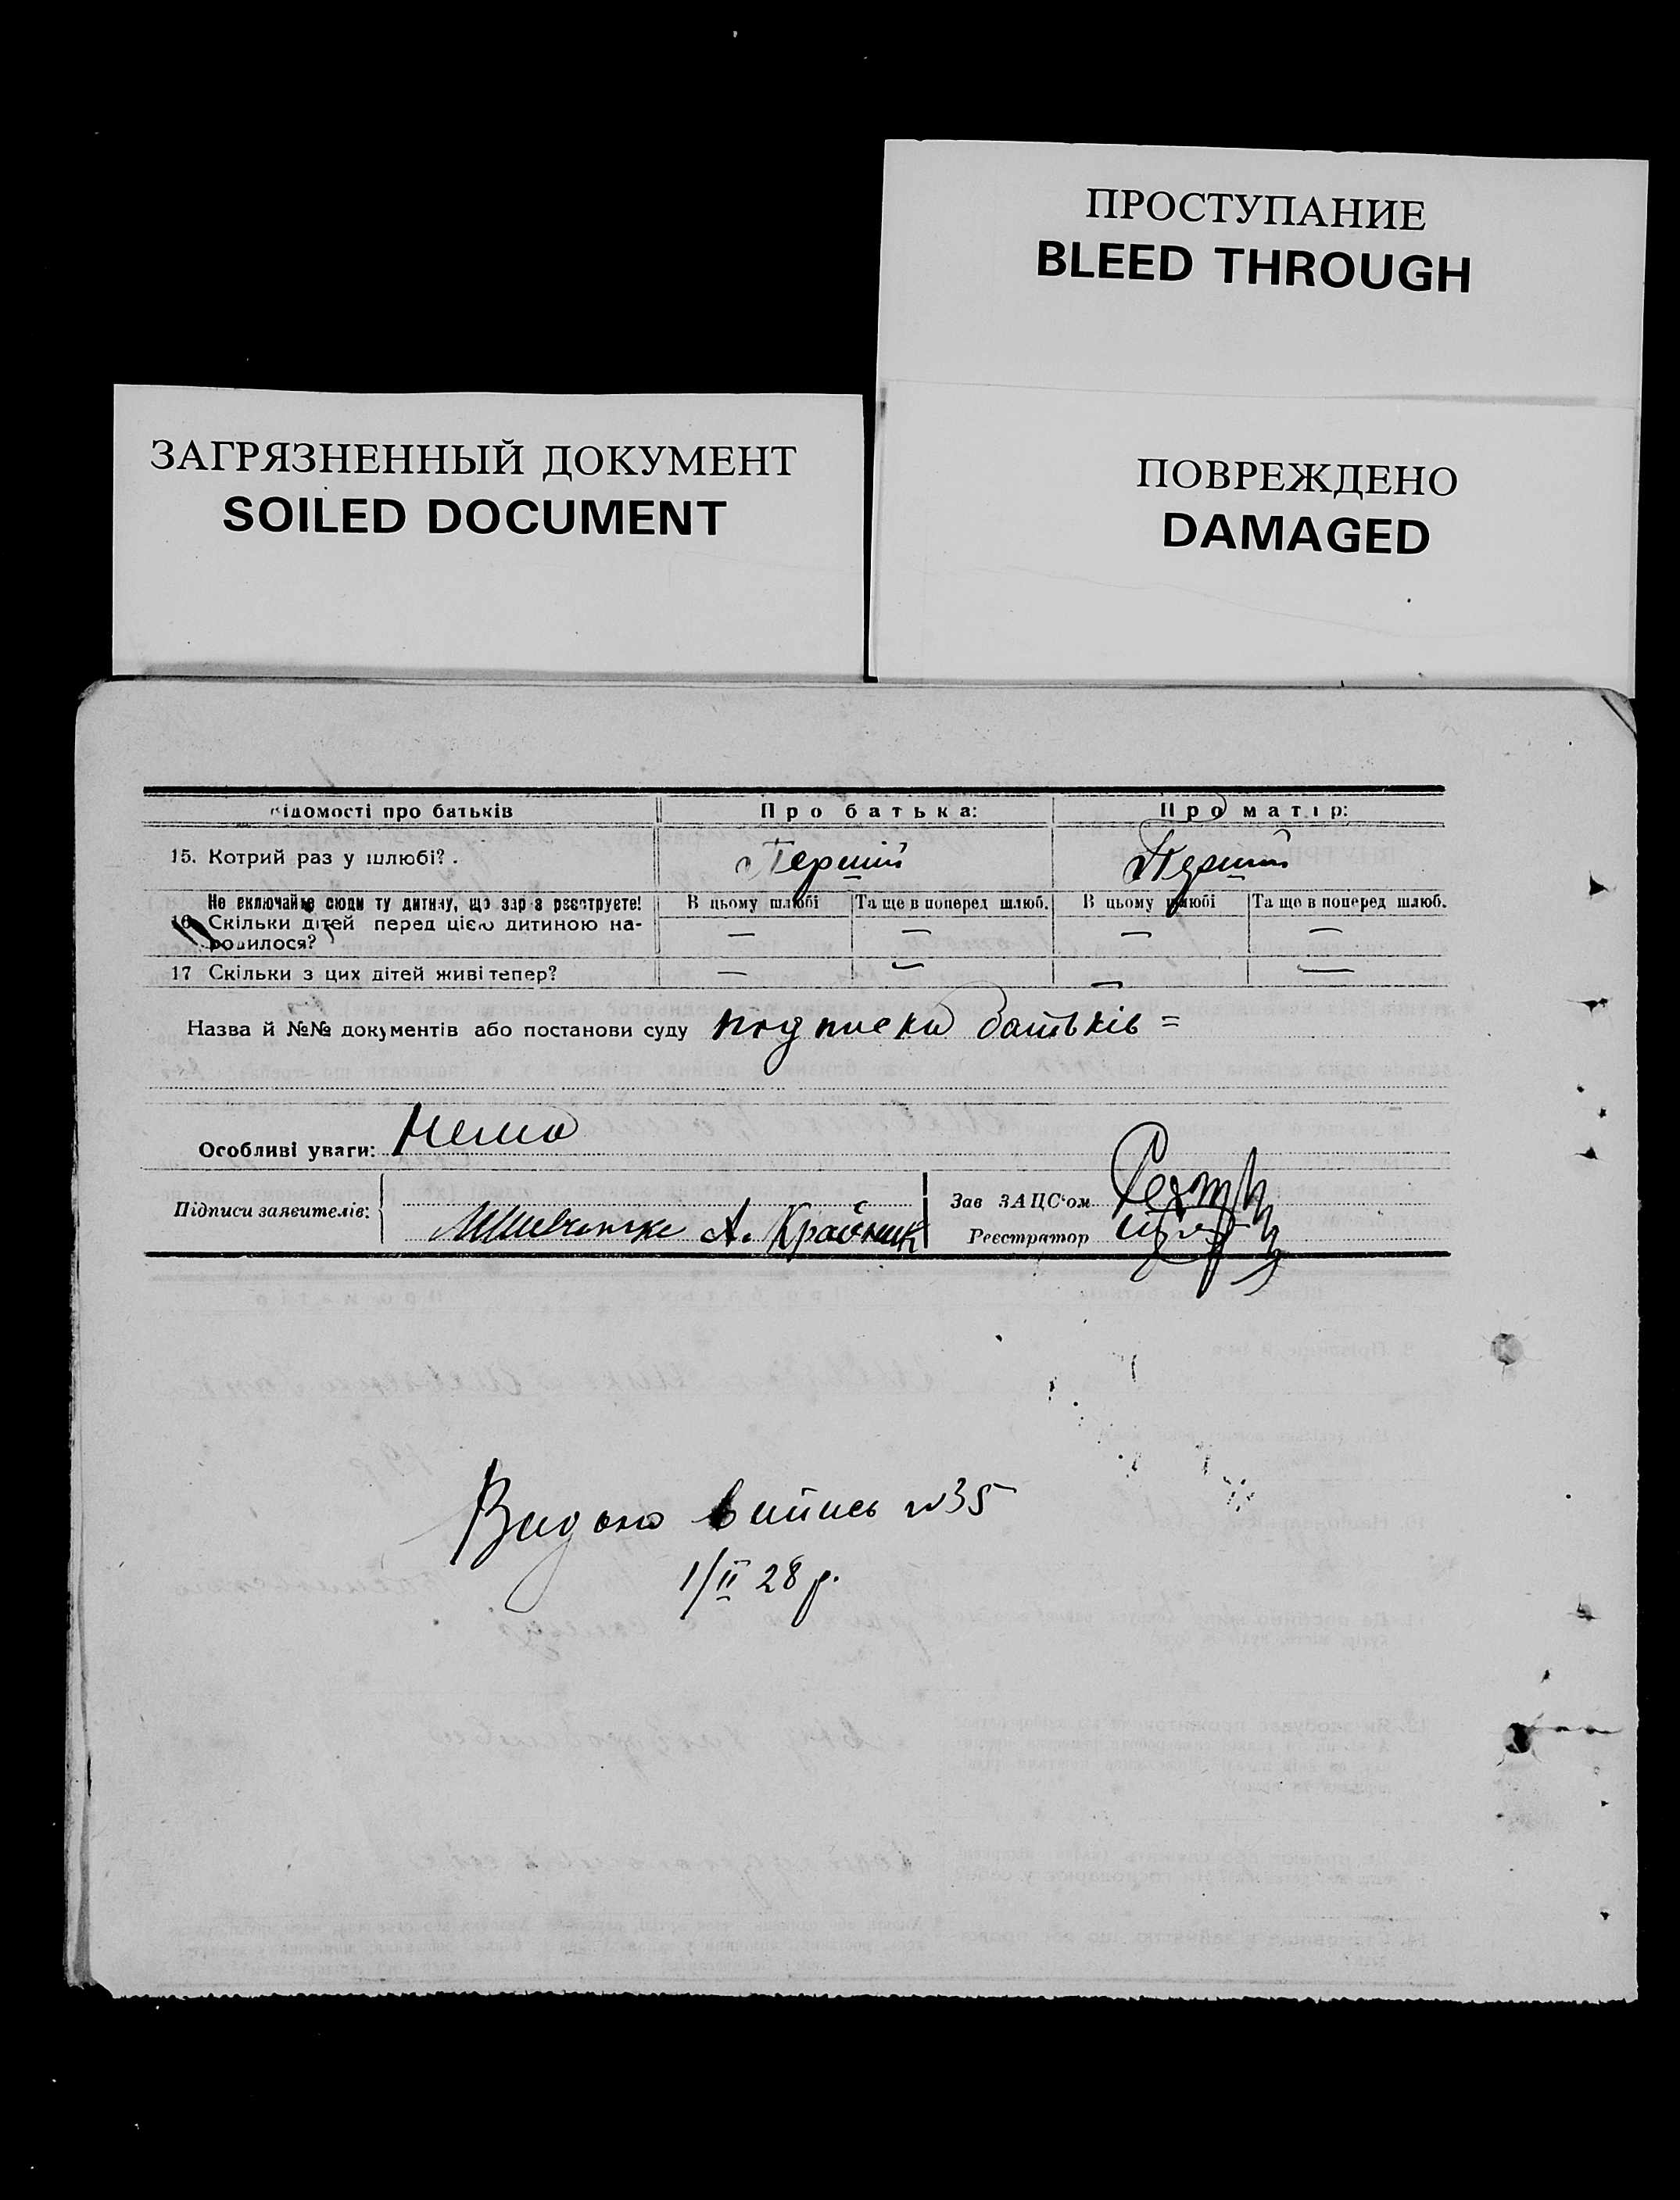 ПРОСТУПАНИЕ
BLEED THROUGH
ЗАГРЯЗНЕННЫЙ ДОКУМЕНТ
SOILED DOCUMENT
ПОВРЕЖДЕНО
DAMAGED
ідомості про батьків Про батька: Про матір:
15. Котрий раз у шлюбі? . Перший Перший
Не включайте сюди ту дитину, що зараз реєструєте! В цьому шлюбі Та ще в поперед шлюб. В цьому шлюбі Та ще в поперед шлюб.
16 Скільки дітей перед цією дитиною на- — — — —
родилося?
17 Скільки з цих дітей живі тепер? — — — —
Назва й №№ документів або постанови суду подписка батьків =
Особливі уваги: Нема
Підписи заявителів: А. Крайник
Зав ЗАЦС'ом
Реєстратор
Видано випись №35
1/II 28 р.